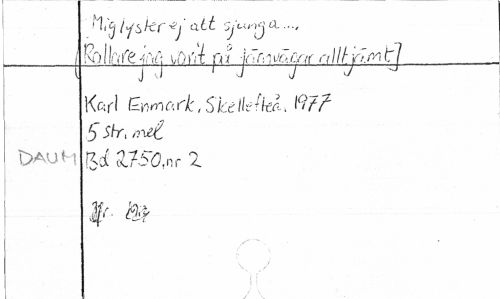 Mig lyster ej att sjunga...
[Rallare jag varit på järnvägar allt jämt]
Karl Enmark, Skellefteå, 1977
5 str, mel
DAUM Bd 2750, nr 2